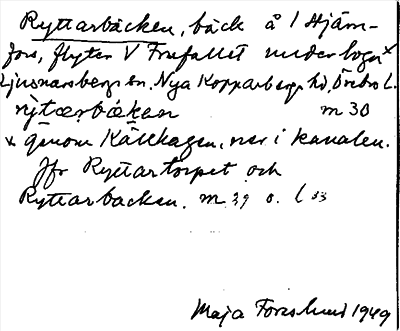 Ryttarbäcken, bäck å 1 Hjäm-
fors, flyter V Frefallet under loga x
Ljusnarsbergs sn. Nya Kopparbergs hd, Örebro L.
rỳtarbǽkan m 30
x genom Källhagen, ner i kanalen.
Jfr Ryttartorpet och
Ryttarbacken. m 39 o. l 33
Maja Forslund 1949